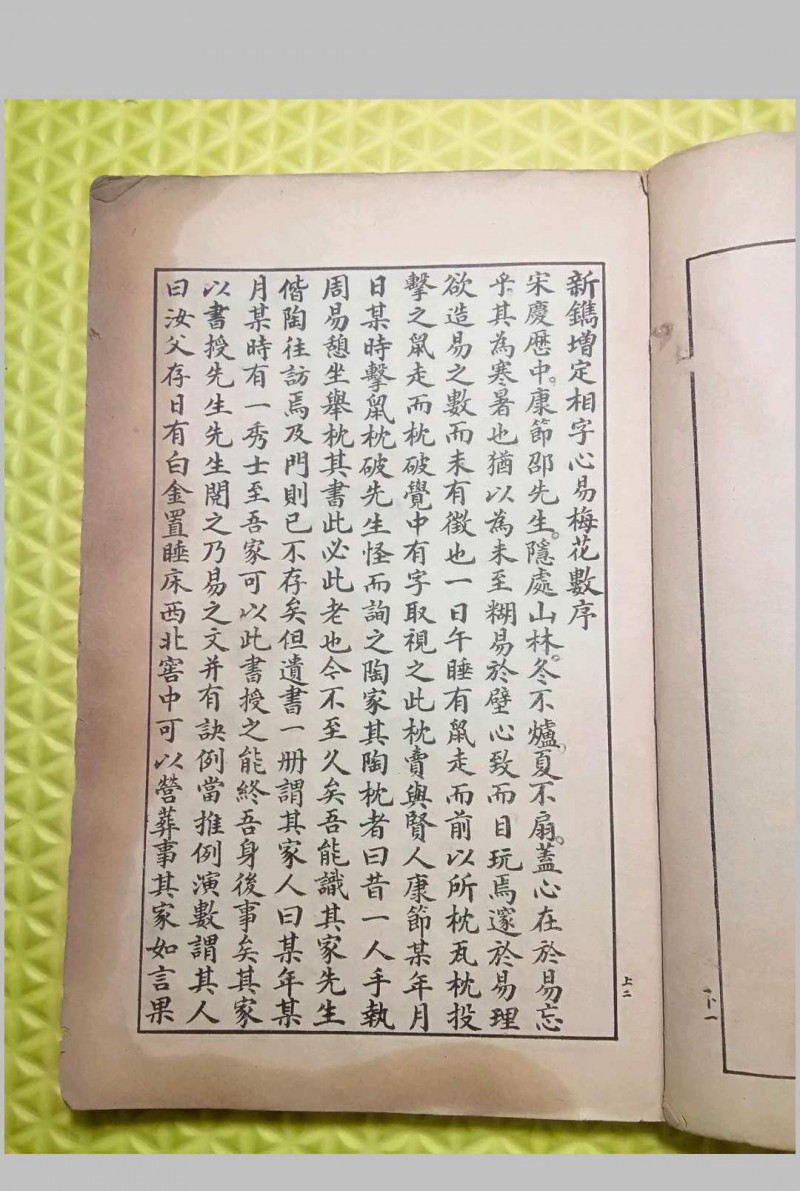 新鐫增定相字心易梅花數序
宋慶歷中。康節邵先生。隱處山林。冬不爐。夏不扇。蓋心在於易忘
乎。其為寒暑也猶以為未至糊易於壁心致而目玩焉邃於易理
欲造易之數而未有徵也一日午睡有鼠走而前以所枕瓦枕投
擊之鼠走而枕破覺中有字取視之此枕賣與賢人康節某年月
日某時擊鼠枕破先生怪而詢之陶家其陶枕者曰昔一人手執
周易憩坐舉枕其書此必此老也今不至久矣吾能識其家先生
偕陶往訪焉及門則已不存矣但遺書一册謂其家人曰某年某
月某時有一秀士至吾家可以此書授之能終吾身後事矣其家
以書授先生先生閱之乃易之文并有訣例當推例演數謂其人
曰汝父存日有白金置睡床西北窖中可以營葬事其家如言果
上二
下一